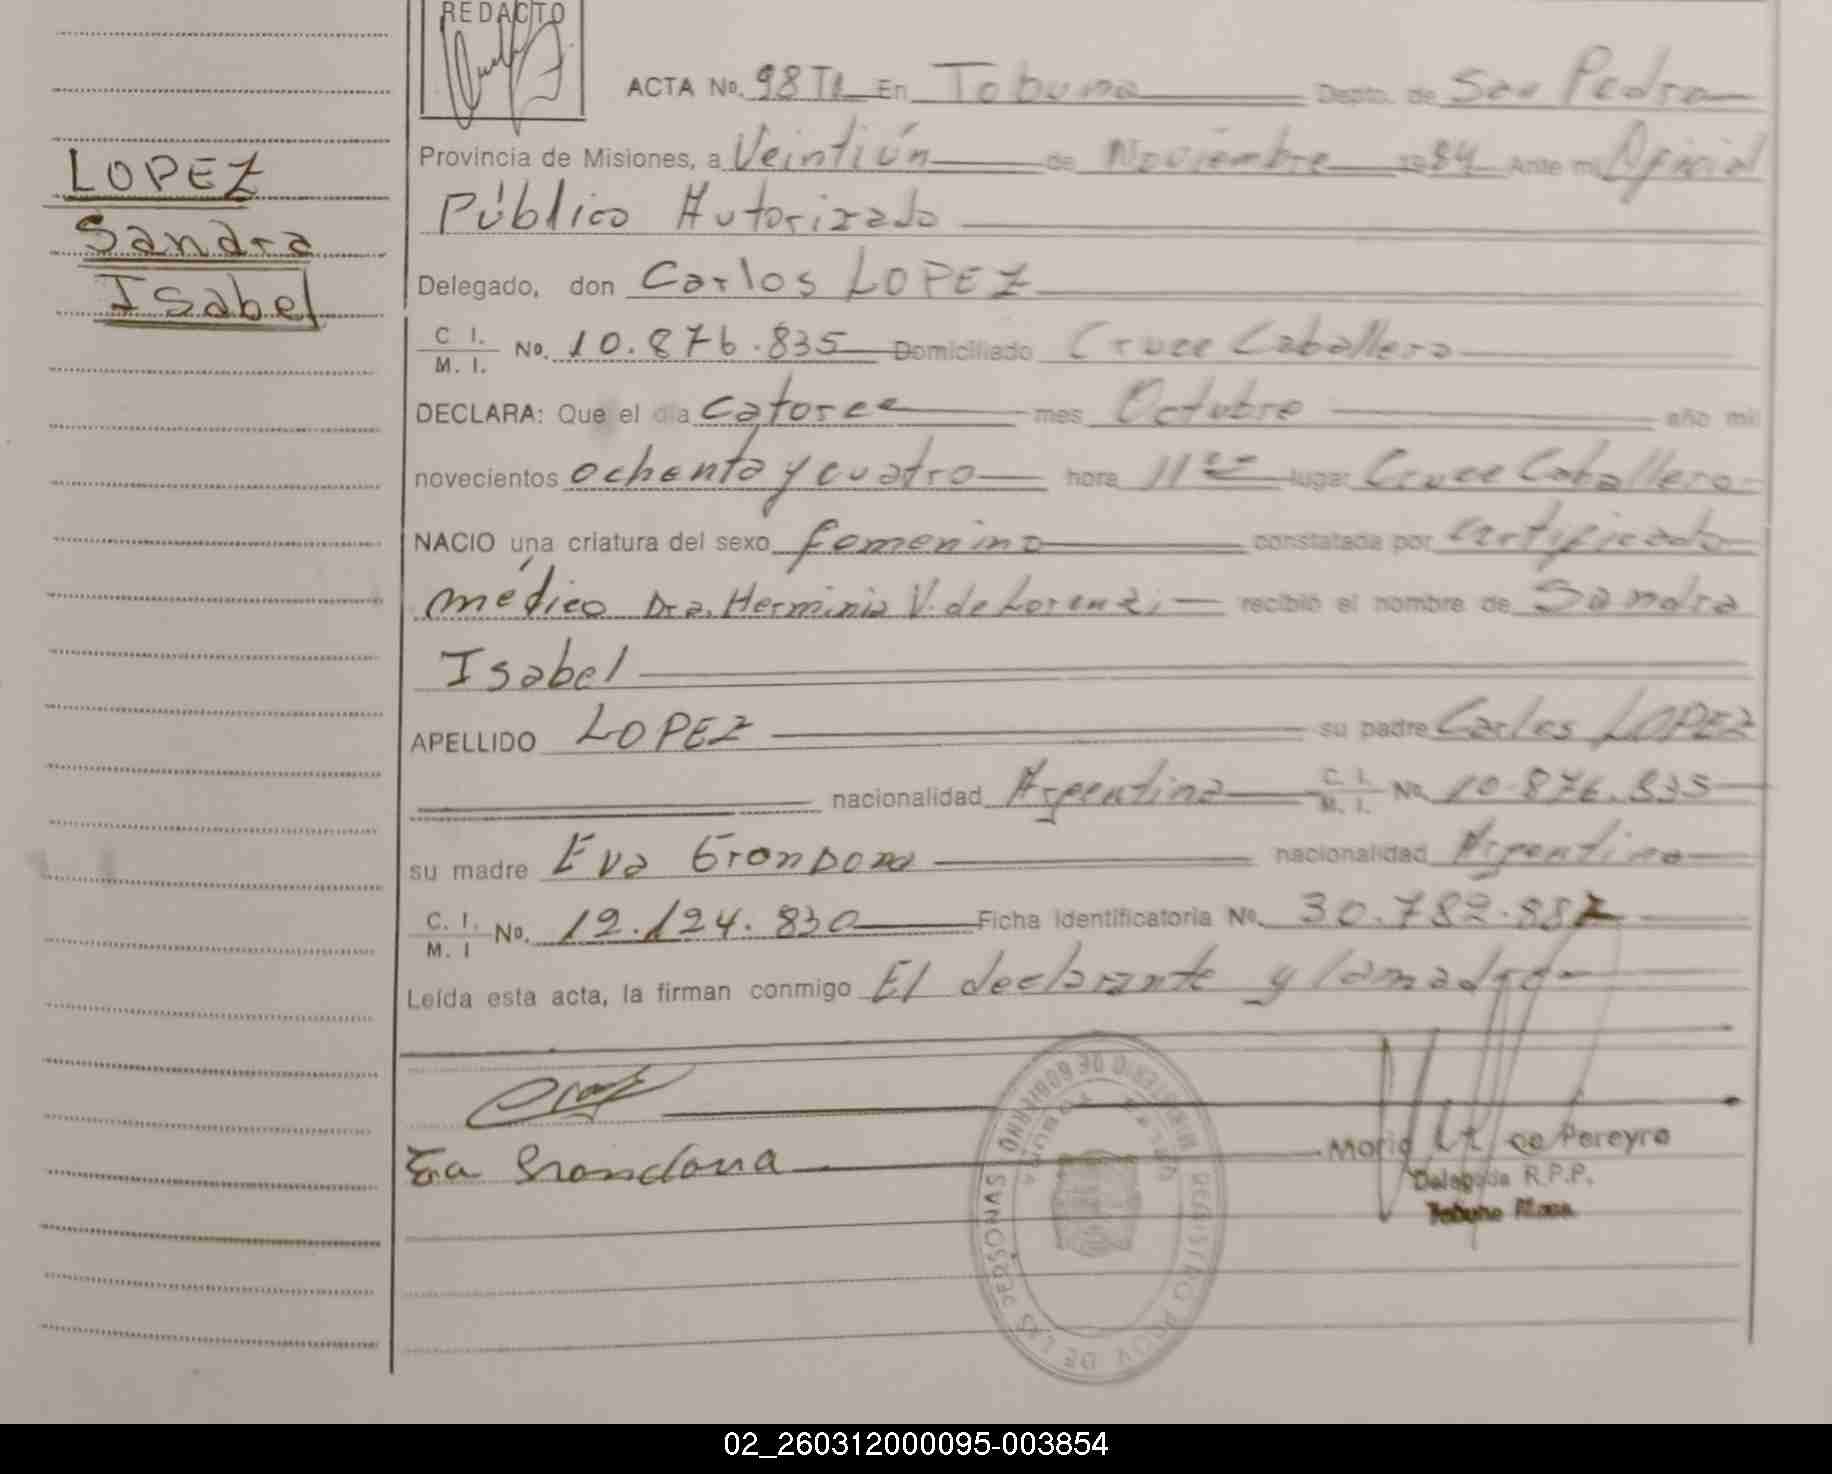 REDACTO
ACTA No. 98 TI En Tobuna Depto. de San Pedro
Provincia de Misiones, a Veintiún de Noviembre 1984 Ante mi Oficial
Público Autorizado
LOPEZ
Sandra
Isabel
Delegado, don Carlos LOPEZ
C. I.
M. I. No. 10.876.835 Domiciliado Cruce Caballero
DECLARA: Que el día catorce mes Octubre año mil
novecientos ochenta y cuatro hora 11 lugar Cruce Caballero
NACIO una criatura del sexo femenino constatada por certificado
médico Dra. Herminia V. de Lorenzi recibió el nombre de Sandra
Isabel
APELLIDO LOPEZ su padre Carlos LOPEZ
nacionalidad Argentina C. I.
M. I. No. 10.876.835
su madre Eva Grondona nacionalidad Argentina
C. I.
M. I No. 12.124.830 Ficha Identificatoria No. 30.782.
Leída esta acta, la firman conmigo El declarante y la madre
Eva Grondona
de Pereyra
Delegada R.P.P.
Tobuno
MINISTERIO DE GOBIERNO
REGISTRO PROV. DE LAS PERSONAS
02_260312000095-003854